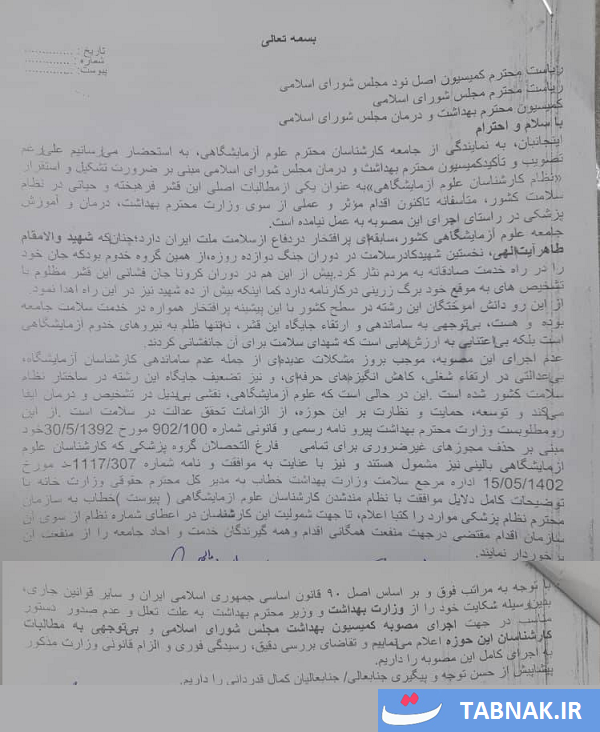 بسمه تعالی
تاریخ : ..............
شماره : ............
پیوست: ............
ریاست محترم کمیسیون اصل نود مجلس شورای اسلامی
ریاست محترم مجلس شورای اسلامی
کمیسیون محترم بهداشت و درمان مجلس شورای اسلامی
با سلام و احترام
اینجانبان، به نمایندگی از جامعه کارشناسان محترم علوم آزمایشگاهی، به استحضار می‌رسانیم علی‌رغم
تصویب و تأکیدکمیسیون محترم بهداشت و درمان مجلس شورای اسلامی مبنی بر ضرورت تشکیل و استقرار
«نظام کارشناسان علوم آزمایشگاهی»به عنوان یکی ازمطالبات اصلی این قشر فرهیخته و حیاتی در نظام
سلامت کشور، متأسفانه تاکنون اقدام مؤثر و عملی از سوی وزارت محترم بهداشت، درمان و آموزش
پزشکی در راستای اجرای این مصوبه به عمل نیامده است.
جامعه علوم آزمایشگاهی کشور،سابقه‌ای پرافتخار دردفاع ازسلامت ملت ایران دارد؛چنان‌که شهید والامقام
طاهرآیت‌الهی، نخستین شهیدکادرسلامت در دوران جنگ دوازده روزه،از همین گروه خدوم بودکه جان خود
را در راه خدمت صادقانه به مردم نثار کرد.پیش از این هم در دوران کرونا جان فشانی این قشر مظلوم با
تشخیص های به موقع خود برگ زرینی درکارنامه دارد کما اینکه بیش از ده شهید نیز در این راه اهدا نمود.
از این رو دانش آموختگان این رشته در سطح کشور با این پیشینه پرافتخار همواره در خدمت سلامت جامعه
بوده و هست، بی‌توجهی به ساماندهی و ارتقاء جایگاه این قشر، نه‌تنها ظلم به نیروهای خدوم آزمایشگاهی
است بلکه بی‌اعتنایی به ارزش‌هایی است که شهدای سلامت برای آن جانفشانی کردند.
عدم اجرای این مصوبه، موجب بروز مشکلات عدیده‌ای از جمله عدم ساماندهی کارشناسان آزمایشگاه،
بی‌عدالتی در ارتقاء شغلی، کاهش انگیزه‌های حرفه‌ای، و نیز تضعیف جایگاه این رشته در ساختار نظام
سلامت کشور شده است .این در حالی است که علوم آزمایشگاهی، نقشی بی‌بدیل در تشخیص و درمان ایفا
می‌کند و توسعه، حمایت و نظارت بر این حوزه، از الزامات تحقق عدالت در سلامت است .از این
رومطلوبست وزارت محترم بهداشت پیرو نامه رسمی و قانونی شماره 902/100 مورخ 30/5/1392خود
مبنی بر حذف مجوزهای غیرضروری برای تمامی فارغ التحصلان گروه پزشکی که کارشناسان علوم
آزمایشگاهی بالینی نیز مشمول هستند و نیز با عنایت به موافقت و نامه شماره 1117/307-د مورخ
15/05/1402 اداره مرجع سلامت وزارت بهداشت خطاب به مدیر کل محترم حقوقی وزارت خانه با
توضیحات کامل دلایل موافقت با نظام مندشدن کارشناسان علوم آزمایشگاهی ( پیوست )خطاب به سازمان
محترم نظام پزشکی موارد را کتبا اعلام، تا جهت شمولیت این کارشناسان در اعطای شماره نظام از سوی این
سازمان اقدام مقتضی درجهت منفعت همگانی اقدام وهمه گیرندگان خدمت و احاد جامعه را از منفعت، این
برخوردار نمایند.
با توجه به مراتب فوق و بر اساس اصل ۹۰ قانون اساسی جمهوری اسلامی ایران و سایر قوانین جاری؛
بدین‌وسیله شکایت خود را از وزارت بهداشت و وزیر محترم بهداشت به علت تعلل و عدم صدور دستور
مناسب در جهت اجرای مصوبه کمیسیون بهداشت مجلس شورای اسلامی و بی‌توجهی به مطالبات
کارشناسان این حوزه اعلام می‌نماییم و تقاضای بررسی دقیق، رسیدگی فوری و الزام قانونی وزارت مذکور
به اجرای کامل این مصوبه را داریم.
پیشاپیش از حسن توجه و پیگیری جنابعالی/ جنابعالیان کمال قدردانی را داریم.
TABNAK.IR